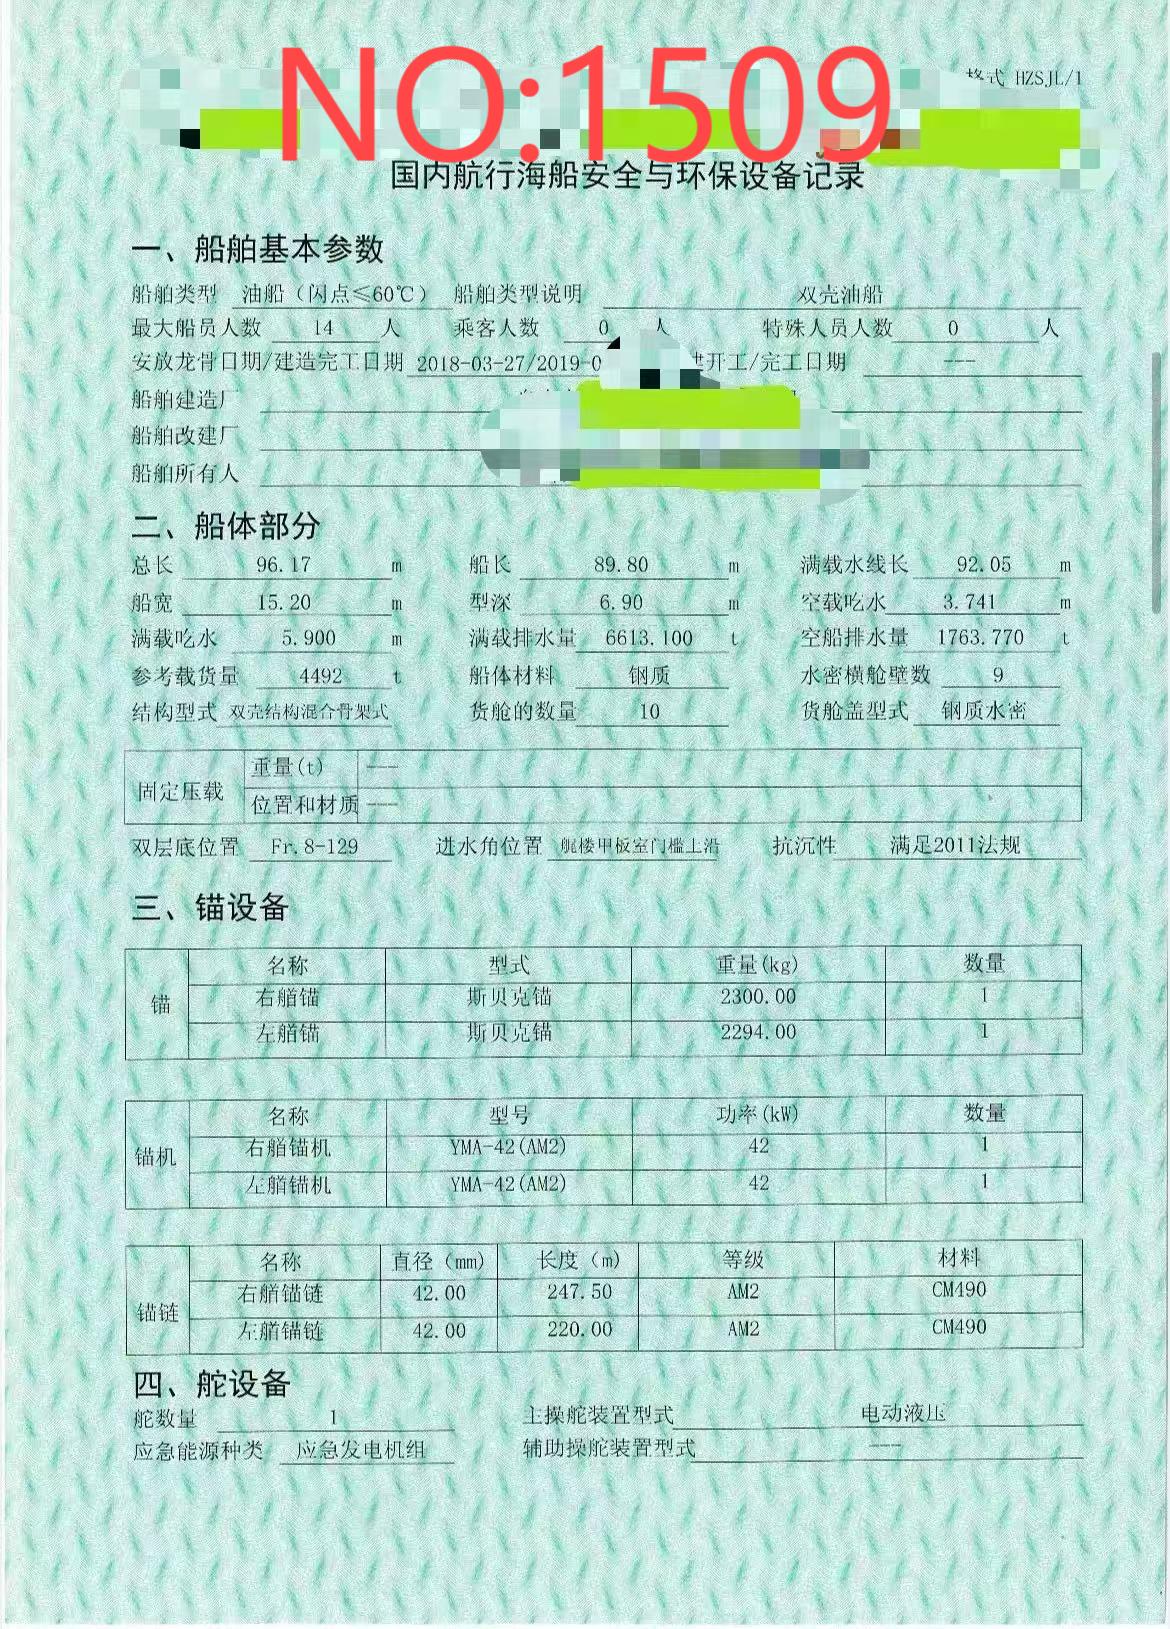 NO:1509
格式 HZSJL/1
国内航行海船安全与环保设备记录
一、船舶基本参数
船舶类型 油船（闪点≤60℃） 船舶类型说明 双壳油船
最大船员人数 14 人 乘客人数 0 人 特殊人员人数 0 人
安放龙骨日期/建造完工日期 2018-03-27/2019-0 建开工/完工日期 ---
船舶建造厂
船舶改建厂
船舶所有人
二、船体部分
总长 96.17 m 船长 89.80 m 满载水线长 92.05 m
船宽 15.20 m 型深 6.90 m 空载吃水 3.741 m
满载吃水 5.900 m 满载排水量 6613.100 t 空船排水量 1763.770 t
参考载货量 4492 t 船体材料 钢质 水密横舱壁数 9
结构型式 双壳结构混合骨架式 货舱的数量 10 货舱盖型式 钢质水密
固定压载 重量(t) ---
位置和材质 ---
双层底位置 Fr.8-129 进水角位置 艉楼甲板室门槛上沿 抗沉性 满足2011法规
三、锚设备
名称 型式 重量(kg) 数量
锚 右艏锚 斯贝克锚 2300.00 1
左艏锚 斯贝克锚 2294.00 1
名称 型号 功率(kW) 数量
锚机 右艏锚机 YMA-42(AM2) 42 1
左艏锚机 YMA-42(AM2) 42 1
名称 直径（mm) 长度（m) 等级 材料
锚链 右艏锚链 42.00 247.50 AM2 CM490
左艏锚链 42.00 220.00 AM2 CM490
四、舵设备
舵数量 1 主操舵装置型式 电动液压
应急能源种类 应急发电机组 辅助操舵装置型式 ---